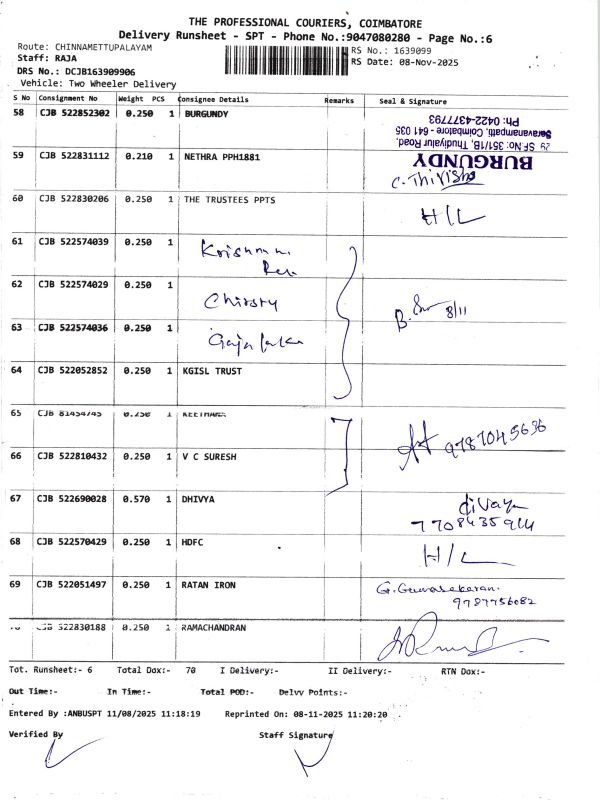 THE PROFESSIONAL COURIERS, COIMBATORE
Delivery Runsheet - SPT - Phone No.:9047080280 - Page No.:6
Route: CHINNAMETTUPALAYAM RS No.: 1639099
Staff: RAJA RS Date: 08-Nov-2025
DRS No.: DCJB163909906
Vehicle: Two Wheeler Delivery
S No Consignment No Weight PCS Consignee Details Remarks Seal & Signature
58 CJB 522852302 0.250 1 BURGUNDY
BURGUNDY
29 SF.No: 351/1B, Thudiyalur Road,
Saravanampatti, Coimbatore - 641 035
Ph: 0422-4377793
59 CJB 522831112 0.210 1 NETHRA PPH1881 C. Thivisha
60 CJB 522830206 0.250 1 THE TRUSTEES PPTS H/L
61 CJB 522574039 0.250 1
62 CJB 522574029 0.250 1 Chirsty
63 CJB 522574036 0.250 1 B. 8/11
64 CJB 522052852 0.250 1 KGISL TRUST
65 CJB 81454745 0.250 1
66 CJB 522810432 0.250 1 V C SURESH 9787045636
67 CJB 522690028 0.570 1 DHIVYA divaya
7708435914
68 CJB 522570429 0.250 1 HDFC H/L
69 CJB 522051497 0.250 1 RATAN IRON G. Gunasekaran
9787756082
CJB 522830188 0.250 1 RAMACHANDRAN
Tot. Runsheet:- 6 Total Dox:- 70 I Delivery:- II Delivery:- RTN Dox:-
Out Time:- In Time:- Total POD:- Delvy Points:-
Entered By :ANBUSPT 11/08/2025 11:18:19 Reprinted On: 08-11-2025 11:20:20
Verified By Staff Signature